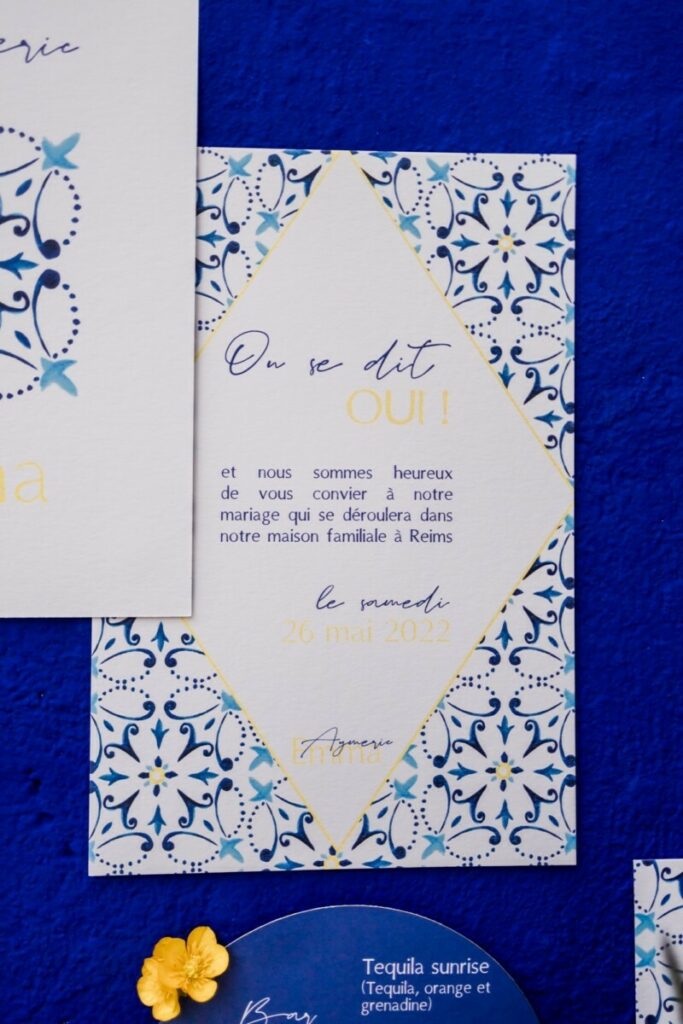 eric
On se dit
OUI !
et nous sommes heureux
de vous convier à notre
mariage qui se déroulera dans
notre maison familiale à Reims
le samedi
26 mai 2022
Aymeric
Emma
Tequila sunrise
(Tequila, orange et
grenadine)
Bar